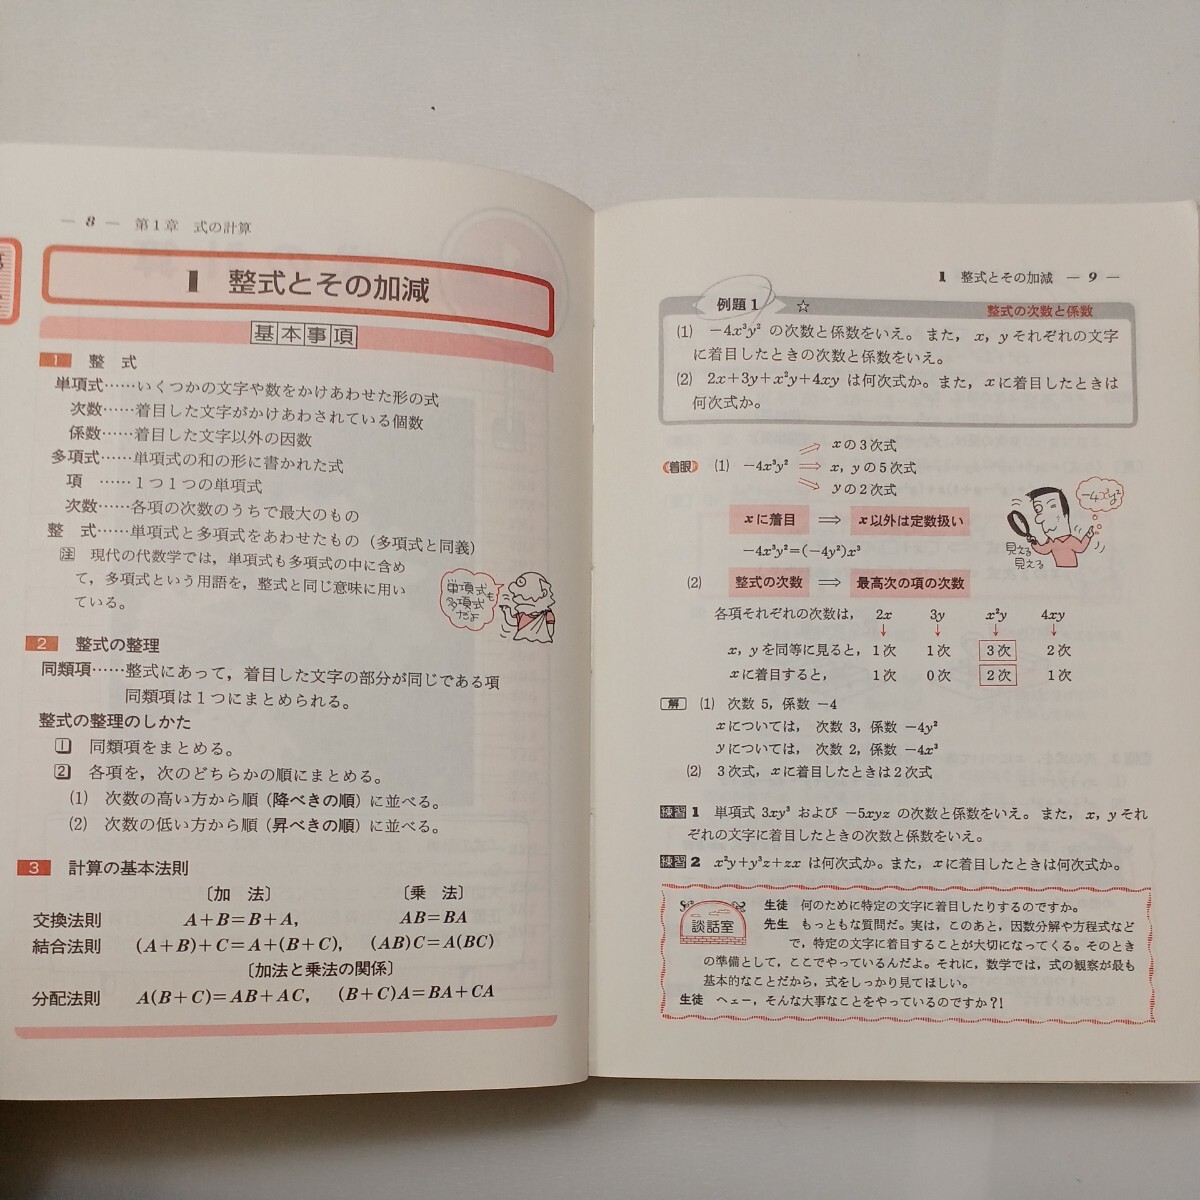 — 8 — 第1章 式の計算
1 整式とその加減
基本事項
1 整 式
単項式……いくつかの文字や数をかけあわせた形の式
次数……着目した文字がかけあわされている個数
係数……着目した文字以外の因数
多項式……単項式の和の形に書かれた式
項 ……1つ1つの単項式
次数……各項の次数のうちで最大のもの
整 式……単項式と多項式をあわせたもの（多項式と同義）
注 現代の代数学では，単項式も多項式の中に含め
て，多項式という用語を，整式と同じ意味に用い
ている。
単項式も
多項式
だよ
2 整式の整理
同類項……整式にあって，着目した文字の部分が同じである項
同類項は1つにまとめられる。
整式の整理のしかた
1 同類項をまとめる。
2 各項を，次のどちらかの順にまとめる。
(1) 次数の高い方から順（降べきの順）に並べる。
(2) 次数の低い方から順（昇べきの順）に並べる。
3 計算の基本法則
〔加 法〕 〔乗 法〕
交換法則 A+B=B+A， AB=BA
結合法則 (A+B)+C=A+(B+C)， (AB)C=A(BC)
〔加法と乗法の関係〕
分配法則 A(B+C)=AB+AC， (B+C)A=BA+CA
1 整式とその加減 — 9 —
例題1 ☆ 整式の次数と係数
(1) −4x³y² の次数と係数をいえ。また，x，y それぞれの文字
に着目したときの次数と係数をいえ。
(2) 2x+3y+x²y+4xy は何次式か。また，x に着目したときは
何次式か。
x の3次式
着眼 (1) −4x³y² ⇒ x，y の5次式
y の2次式
x に着目 ⇒ x 以外は定数扱い
−4x³y²=(−4y²)x³
−4x³y²
見える
見える
(2) 整式の次数 ⇒ 最高次の項の次数
各項それぞれの次数は， 2x 3y x²y 4xy
↓ ↓ ↓ ↓
x，y を同等に見ると，1次 1次 3次 2次
x に着目すると， 1次 0次 2次 1次
解 (1) 次数 5，係数 −4
x については， 次数 3，係数 −4y²
y については， 次数 2，係数 −4x³
(2) 3次式，x に着目したときは2次式
練習 1 単項式 3xy³ および −5xyz の次数と係数をいえ。また，x，y それ
ぞれの文字に着目したときの次数と係数をいえ。
練習 2 x²y+y³z+zx は何次式か。また，x に着目したときは何次式か。
談話室
生徒 何のために特定の文字に着目したりするのですか。
先生 もっともな質問だ。実は，このあと，因数分解や方程式などで
，特定の文字に着目することが大切になってくる。そのとき
の準備として，ここでやっているんだよ。それに，数学では，式の観察が最も
基本的なことだから，式をしっかり見てほしい。
生徒 ヘェー，そんな大事なことをやっているのですか?!